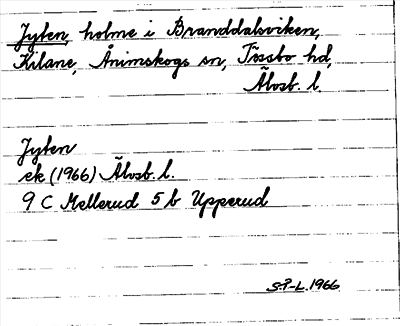 Jyten, holme i Branddalsviken,
Kilane, Ånimskogs sn, Tössbo hd,
Älvsb. l.
Jyten
ek (1966) Älvsb. l.
9 C Mellerud 5 b Upperud
S.P-L. 1966